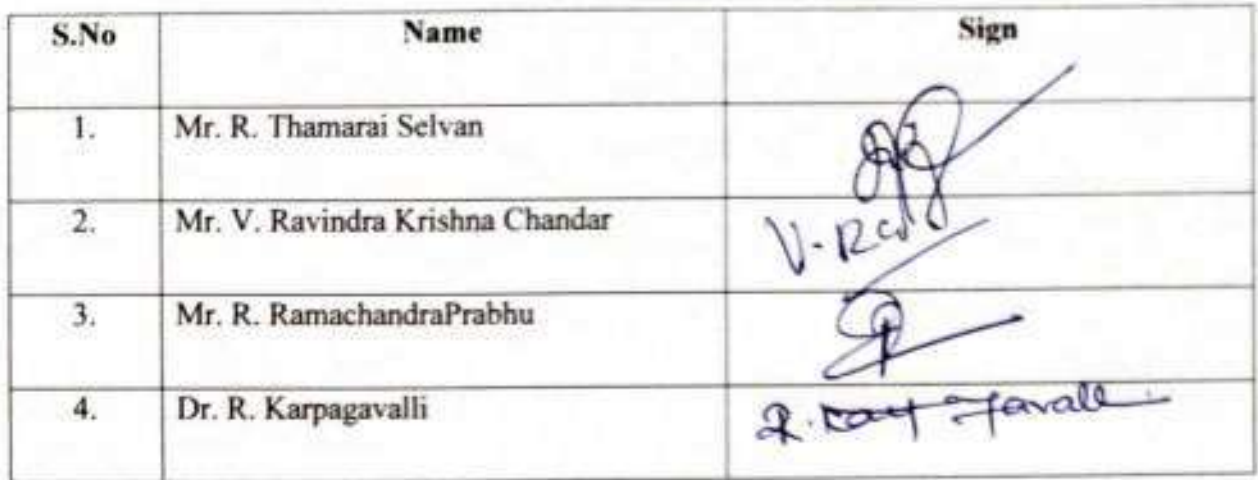 S.No Name Sign
1. Mr. R. Thamarai Selvan
2. Mr. V. Ravindra Krishna Chandar
3. Mr. R. RamachandraPrabhu
4. Dr. R. Karpagavalli